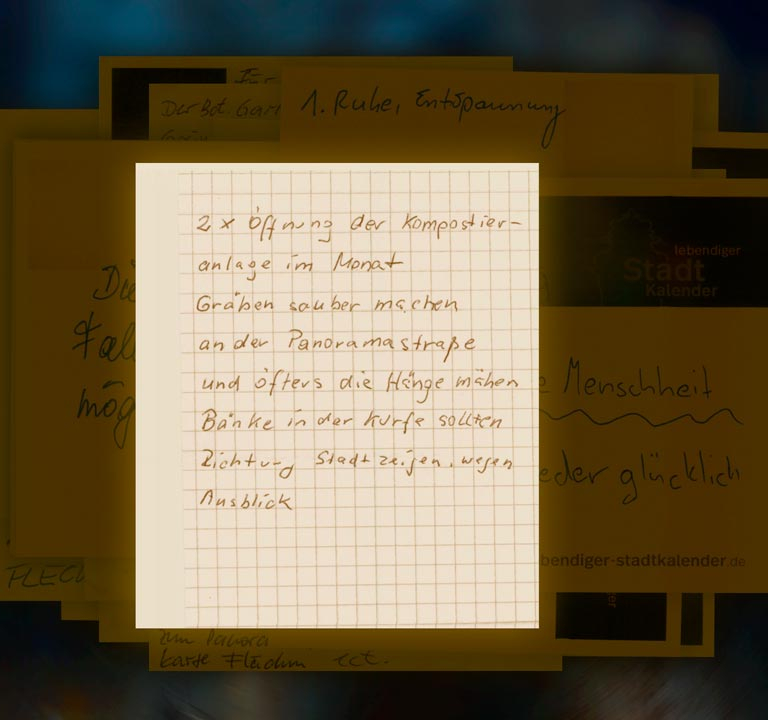 Für
Der Bot. Gart
1. Ruhe, Entspannung
2 x Öffnung der Kompostier-
anlage im Monat
Gräben sauber machen
an der Panoramastraße
und öfters die Hänge mähen
Bänke in der Kurfe sollten
Richtung Stadt zeigen, wegen
Ausblick
lebendiger
Stadt
Kalender
Die
Fal
mög
Menschheit
eder glücklich
bendiger-stadtkalender.de
FLECK
zum Panora
karte Flächen ect.